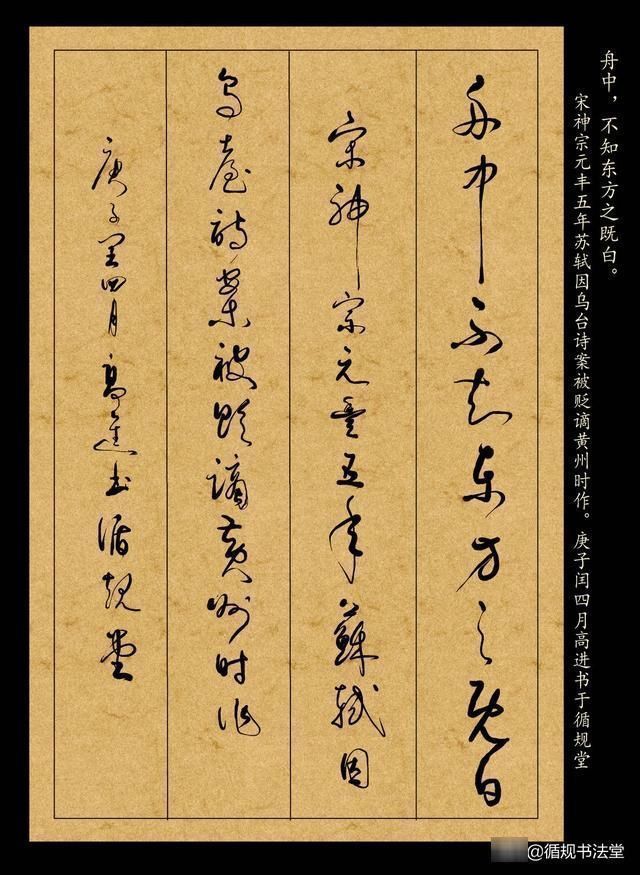 舟中，不知东方之既白。
宋神宗元丰五年苏轼因乌台诗案被贬谪黄州时作。庚子闰四月高进书于循规堂
舟中不知东方之既白
宋神宗元豐五年蘇軾因
烏臺詩案被貶謫黄州时作
庚子闰四月高進书循規堂
@循规书法堂